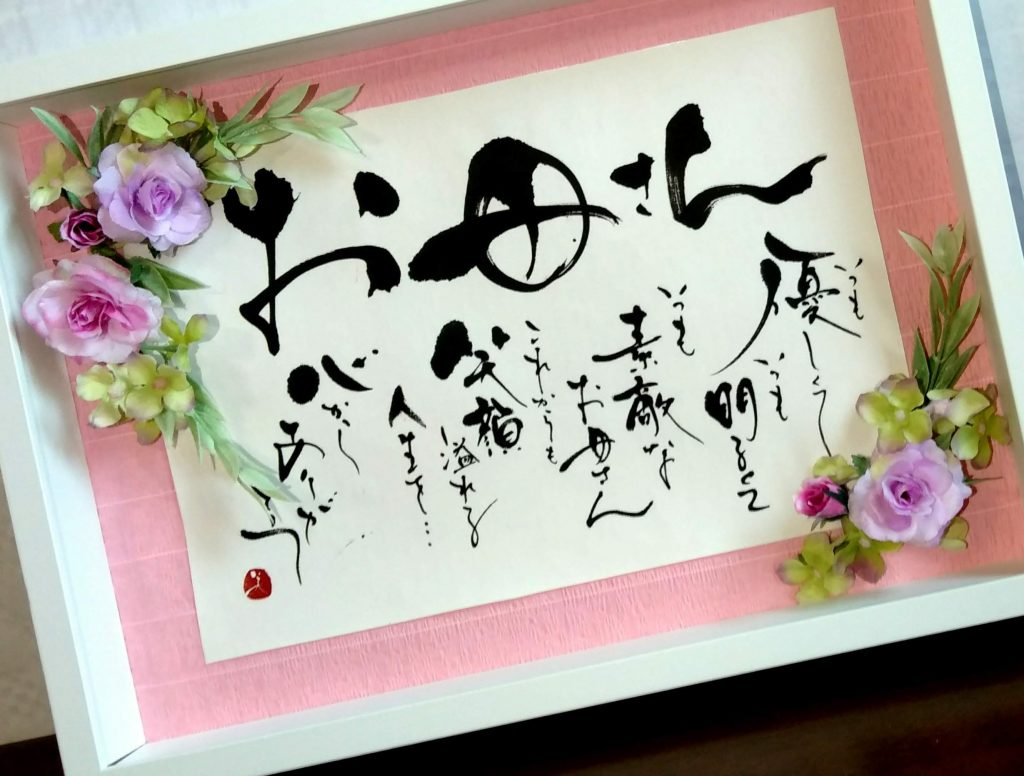 お母さん
いつも
優しくて
いつも
明るくて
いつも
素敵な
お母さん
これからも
笑顔
溢れる
人生を…
心から
ありがとう